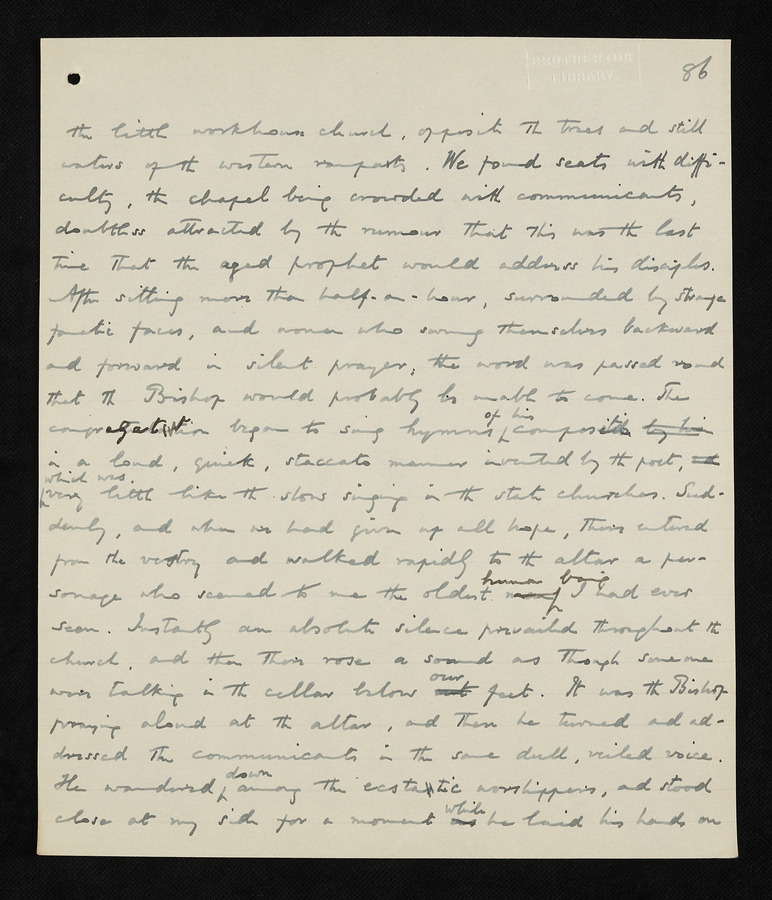 BROTHERTON
LIBRARY.
86
the little workhouse church, opposite the trees and still
waters of the western ramparts. We found seats with diffi-
culty, the chapel being crowded with communicants,
doubtless attracted by the rumour that this was the last
time that the aged prophet would address his disciples.
After sitting more than half-an-hour, surrounded by strange
fanatic faces, and women who swung themselves backward
and forward in silent prayer, the word was passed round
that the Bishop would probably be unable to come. The
congregation began to sing hymns of his composition by him
in a loud, quick, staccato manner invented by the poet,
which was very little like the slow singing in the state churches. Sud-
denly, and when we had given up all hope, there entered
from the vestry and walked rapidly to the altar a per-
sonage who seemed to me the oldest human being I had ever
seen. Instantly an absolute silence prevailed throughout the
church, and then there rose a sound as though someone
were talking in the cellar below our feet. It was the Bishop
praying aloud at the altar, and then he turned and ad-
dressed the communicants in the same dull, veiled voice.
He wandered down among the ecstatic worshippers, and stood
close at my side for a moment while he laid his hands on